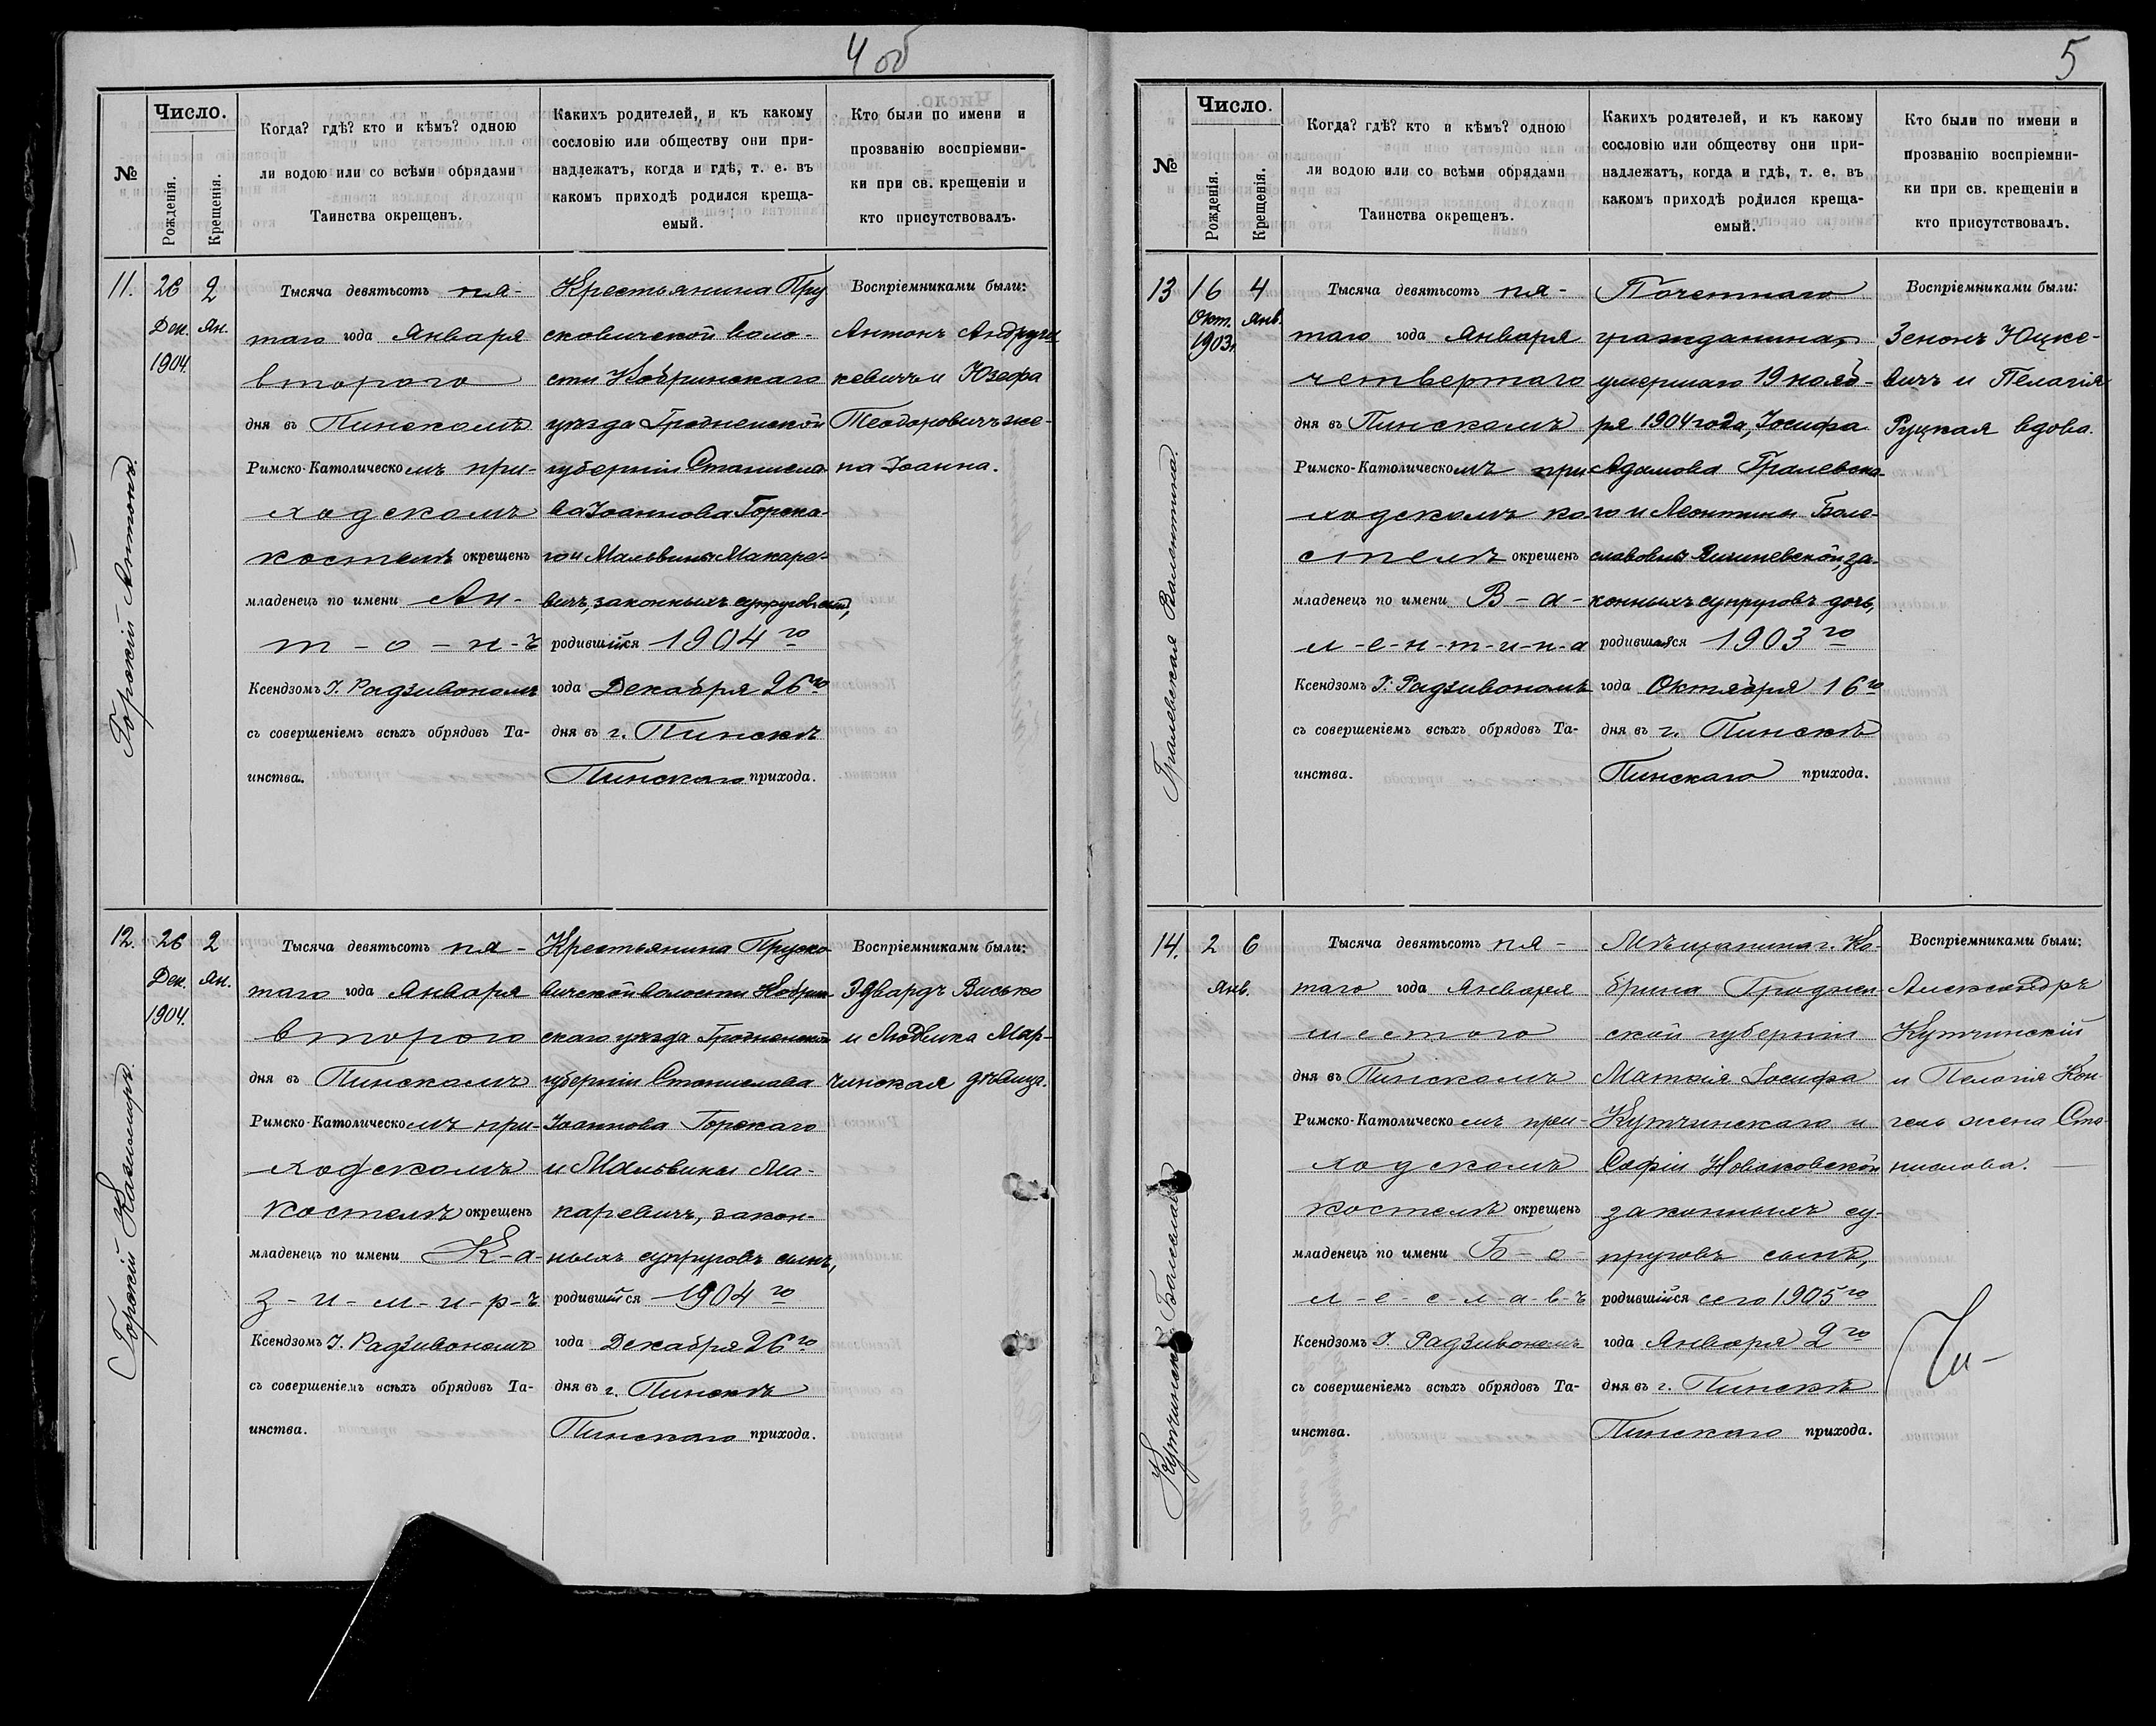 4 об
№
Число.
Рожденія.
Крещенія.
Когда? гдѣ? кто и кѣмъ? одною
ли водою или со всѣми обрядами
Таинства окрещенъ.
Какихъ родителей, и къ какому
сословію или обществу они при-
надлежатъ, когда и гдѣ, т. е. въ
какомъ приходѣ родился креща-
емый.
Кто были по имени и
прозванію воспріемни-
ки при св. крещеніи и
кто присутствовалъ.
11.
Горскій Антонъ.
26
Дек.
1904.
2
Ян.
Тысяча девятьсотъ пя-
таго года Января
втораго
дня въ Пинскомъ
Римско-Католическомъ при-
ходскомъ
костелѣ окрещенъ
младенецъ по имени Ан-
т-о-н-ъ
Ксендзомъ І. Радзивономъ
съ совершеніемъ всѣхъ обрядовъ Та-
инства.
Крестьянина Пру
сковичской воло-
сти Кобринскаго
уѣзда Гродненской
губерніи Станисла-
ва Іоаннова Горска-
го и Мальвины Макаре-
вичъ, законныхъ супруговъ сынъ,
родившійся 1904 го
года Декабря 26 го
дня въ г. Пинскѣ
Пинскаго прихода.
Воспріемниками были:
Антонъ Андруш
кевичъ и Юзефа
Теодоровичъ же-
на Іоанна.
12.
Горскій Казимиръ.
26
Дек.
1904.
2
Ян.
Тысяча девятьсотъ пя-
таго года Января
второго
дня въ Пинскомъ
Римско-Католическомъ при-
ходскомъ
костелѣ окрещенъ
младенецъ по имени К-а-
з-и-м-и-р-ъ
Ксендзомъ І. Радзивономъ
съ совершеніемъ всѣхъ обрядовъ Та-
инства.
Крестьянина Пруско-
вичской волости Кобрин-
скаго уѣзда Гродненской
губерніи Станислава
Іоаннова Горскаго
и Мальвины Ма-
каревичъ, закон-
ныхъ супруговъ сынъ,
родившійся 1904 го
года Декабря 26 го
дня въ г. Пинскѣ
Пинскаго прихода.
Воспріемниками были:
Эдвардъ Васько
и Людвика Мар-
чинская дѣвица.
5
№
Число.
Рожденія.
Крещенія.
Когда? гдѣ? кто и кѣмъ? одною
ли водою или со всѣми обрядами
Таинства окрещенъ.
Какихъ родителей, и къ какому
сословію или обществу они при-
надлежатъ, когда и гдѣ, т. е. въ
какомъ приходѣ родился креща-
емый.
Кто были по имени и
прозванію воспріемни-
ки при св. крещеніи и
кто присутствовалъ.
13
Гралевская Валентина.
16
Окт.
1903.
4
Янв.
Тысяча девятьсотъ пя-
таго года Января
четвертаго
дня въ Пинскомъ
Римско-Католическомъ при-
ходскомъ ко-
стелѣ окрещенъ
младенецъ по имени В-а-
л-е-н-т-и-н-а
Ксендзомъ І. Радзивономъ
съ совершеніемъ всѣхъ обрядовъ Та-
инства.
Почетнаго
гражданина,
умершаго 19 нояб-
ря 1904 года, Іосифа
Адамова Гралевска-
го и Леонтины Боле-
славовны Вишневской, за-
конныхъ супруговъ дочь,
родившаяся 1903 го
года Октября 16 го
дня въ г. Пинскѣ
Пинскаго прихода.
Воспріемниками были:
Зенонъ Юцке-
вичъ и Пелагія
Руцкая вдова.
14.
Кутчинскій Болеславъ
2
6
Янв.
Тысяча девятьсотъ пя-
таго года Января
шестого
дня въ Пинскомъ
Римско-Католическомъ при-
ходскомъ
костелѣ окрещенъ
младенецъ по имени Б-о-
л-е-с-л-а-в-ъ
Ксендзомъ І. Радзивономъ
съ совершеніемъ всѣхъ обрядовъ Та-
инства.
Мѣщанина г. Ко-
брина Гроднен-
ской губерніи
Матвія Іосифа
Кутчинскаго и
Софіи Новаковской
законныхъ су-
пруговъ сынъ,
родившійся сего 1905 го
года Января 2 го
дня въ г. Пинскѣ
Пинскаго прихода.
Воспріемниками были:
Александръ
Кутчинскій
и Пелагія Кон-
гель жена Ста-
нислава.